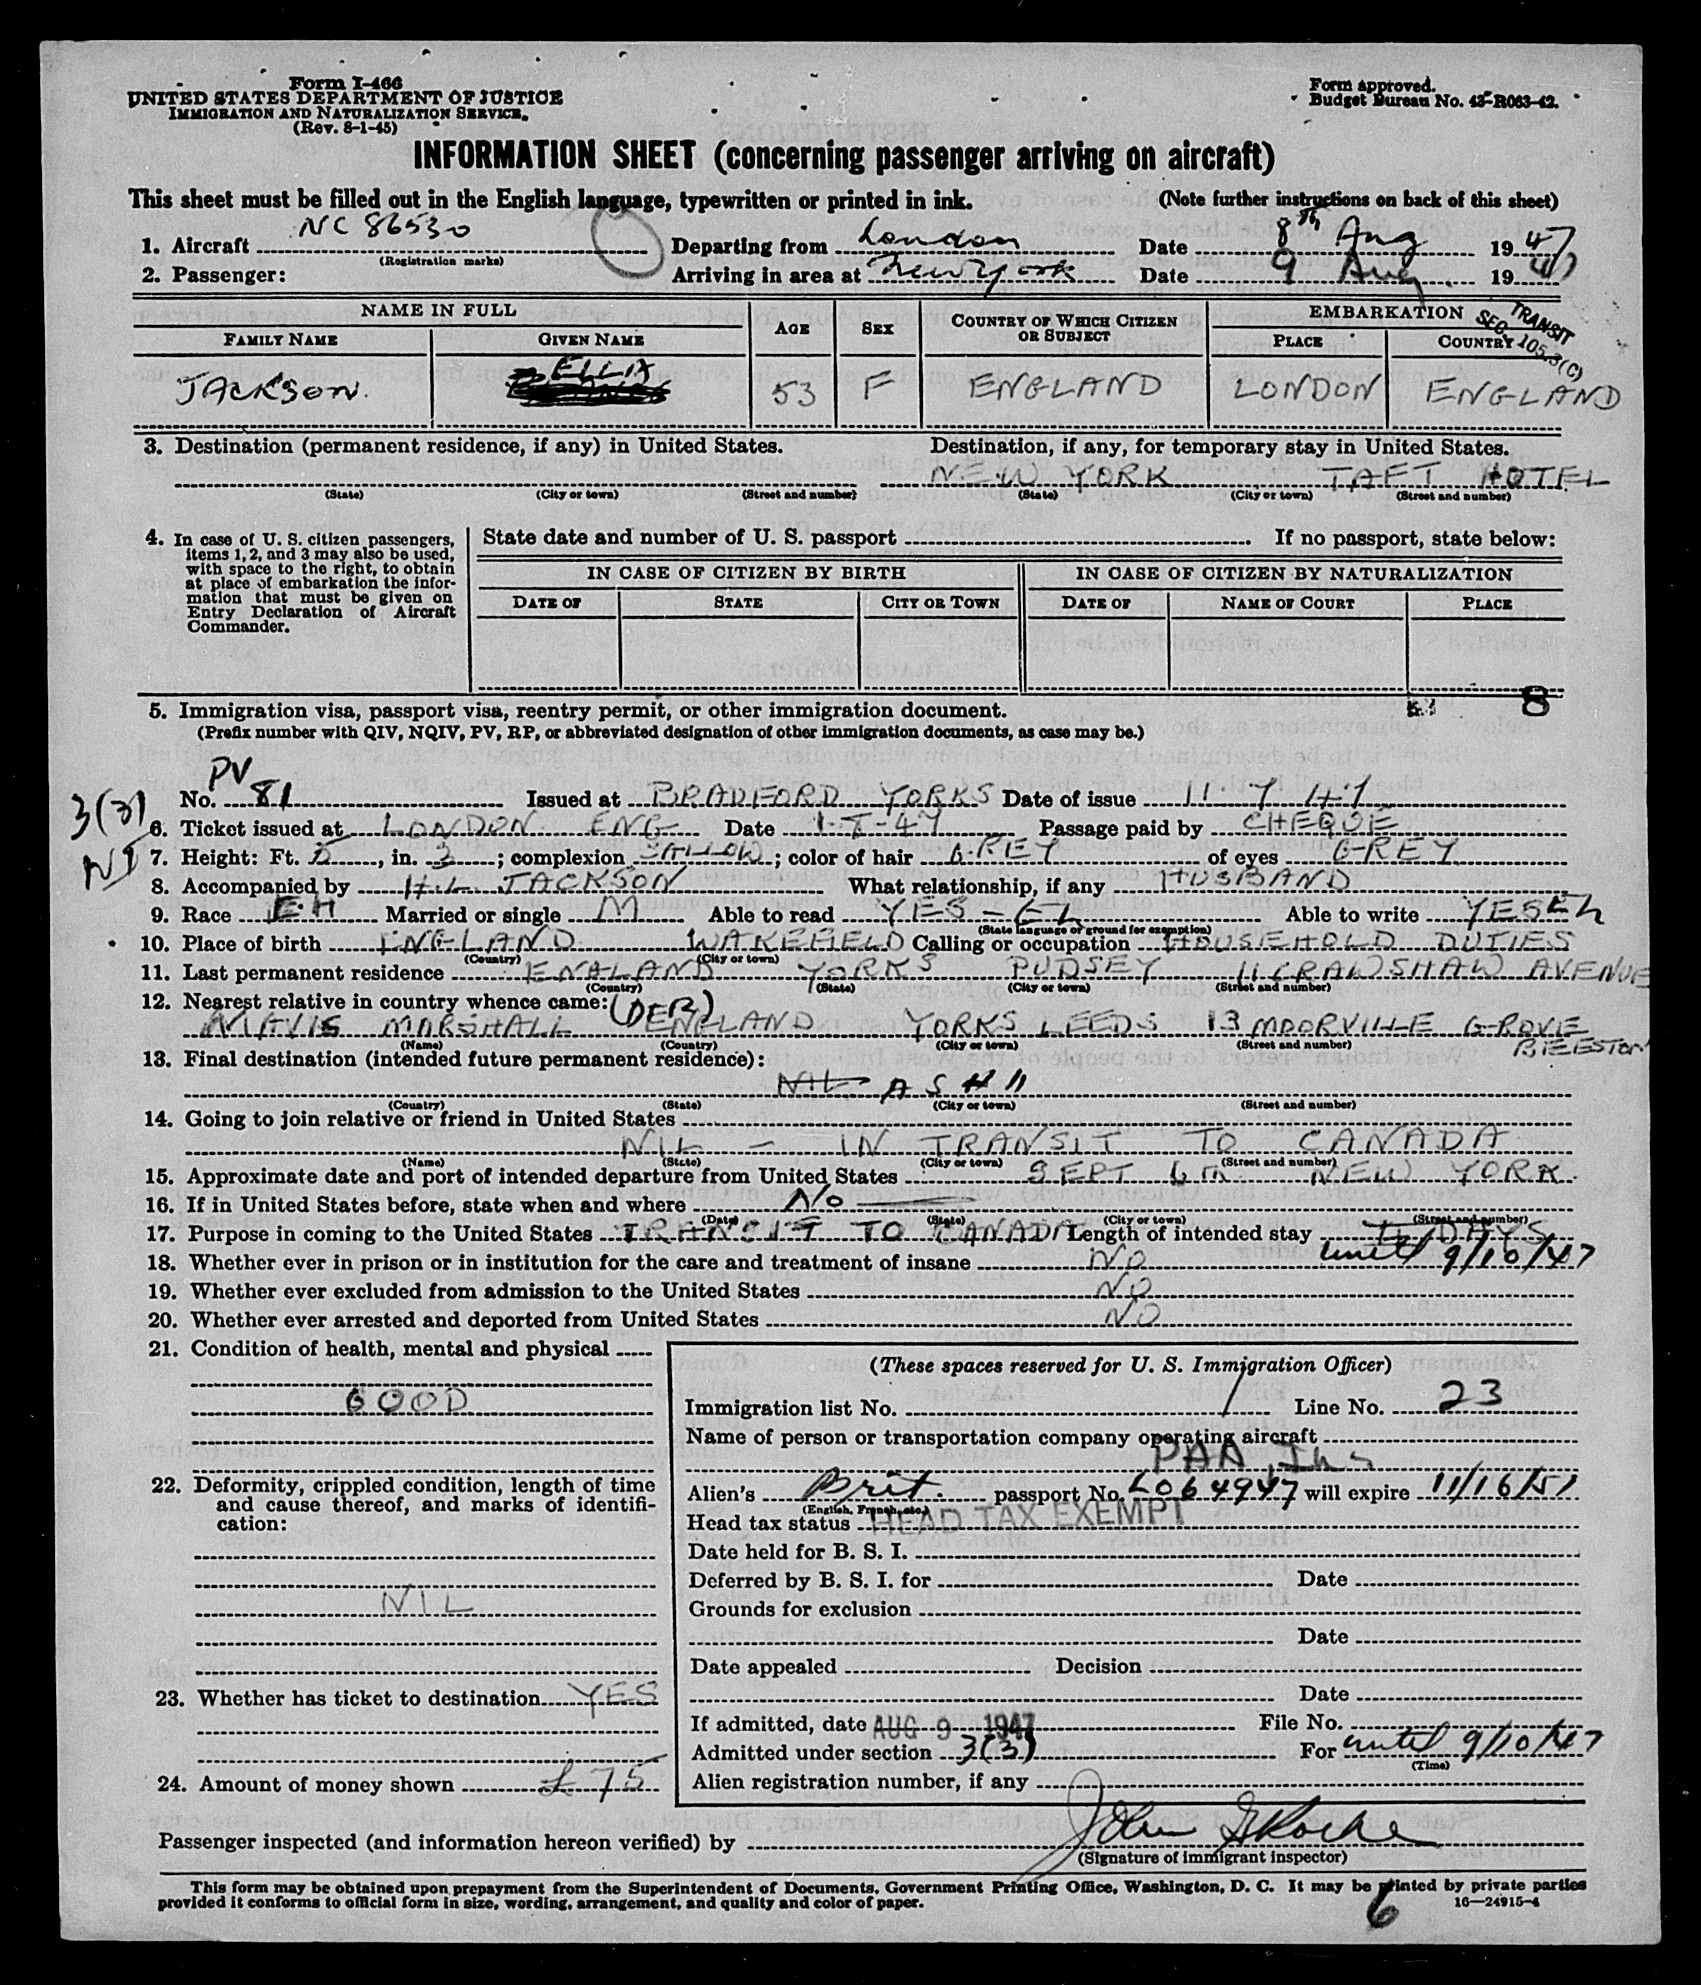 Form I-466
UNITED STATES DEPARTMENT OF JUSTICE
IMMIGRATION AND NATURALIZATION SERVICE.
(Rev. 8-1-45)
Form approved.
Budget Bureau No. 43-R063-42.
INFORMATION SHEET (concerning passenger arriving on aircraft)
This sheet must be filled out in the English language, typewritten or printed in ink. (Note further instructions on back of this sheet)
1. Aircraft NC 86530 Departing from London Date 8th Aug 1947
(Registration marks)
2. Passenger: Arriving in area at New York Date 9 Aug 1947
NAME IN FULL AGE SEX COUNTRY OF WHICH CITIZEN OR SUBJECT EMBARKATION
TRANSIT SEC. 105.3(C)
FAMILY NAME GIVEN NAME PLACE COUNTRY
JACKSON. ELLIA 53 F ENGLAND LONDON ENGLAND
3. Destination (permanent residence, if any) in United States. Destination, if any, for temporary stay in United States.
NEW YORK TAFT HOTEL
(State) (City or town) (Street and number) (State) (City or town) (Street and number)
4. In case of U. S. citizen passengers, items 1, 2, and 3 may also be used, with space to the right, to obtain at place of embarkation the information that must be given on Entry Declaration of Aircraft Commander.
State date and number of U. S. passport If no passport, state below:
IN CASE OF CITIZEN BY BIRTH IN CASE OF CITIZEN BY NATURALIZATION
DATE OF STATE CITY OR TOWN DATE OF NAME OF COURT PLACE
8
5. Immigration visa, passport visa, reentry permit, or other immigration document.
(Prefix number with QIV, NQIV, PV, RP, or abbreviated designation of other immigration documents, as case may be.)
PV
No. 81 Issued at BRADFORD YORKS Date of issue 11 7 47
3(3)
6. Ticket issued at LONDON ENG Date 1-8-47 Passage paid by CHEQUE
7. Height: Ft. 5, in. 3; complexion SALLOW; color of hair GREY of eyes GREY
8. Accompanied by H.L. JACKSON What relationship, if any HUSBAND
9. Race E.H Married or single M Able to read YES - EL Able to write YES EL
(State language or ground for exemption)
10. Place of birth ENGLAND WAKEFIELD Calling or occupation HOUSEHOLD DUTIES
(Country) (City or town)
11. Last permanent residence ENGLAND YORKS PUDSEY 11 CRAWSHAW AVENUE
(Country) (State) (City or town) (Street and number)
12. Nearest relative in country whence came:
MAVIS MARSHALL ENGLAND YORKS LEEDS 13 MOORVILLE GROVE
(Name) (Country) (City or town) (Street and number) BEESTON
13. Final destination (intended future permanent residence):
NIL AS # 11
(Country) (State) (City or town) (Street and number)
14. Going to join relative or friend in United States
NIL - IN TRANSIT TO CANADA
(Name) (State) (City or town) (Street and number)
15. Approximate date and port of intended departure from United States SEPT 6TH NEW YORK
16. If in United States before, state when and where No
(Date) (State) (City or town) (Street and number)
17. Purpose in coming to the United States TRANSIT TO CANADA Length of intended stay DAYS
until 9/10/47
18. Whether ever in prison or in institution for the care and treatment of insane NO
19. Whether ever excluded from admission to the United States NO
20. Whether ever arrested and deported from United States NO
21. Condition of health, mental and physical
GOOD
22. Deformity, crippled condition, length of time and cause thereof, and marks of identification:
NIL
23. Whether has ticket to destination YES
24. Amount of money shown £75
(These spaces reserved for U. S. Immigration Officer)
Immigration list No. 1 Line No. 23
Name of person or transportation company operating aircraft
PAA, Inc
Alien's Brit. passport No. L064947 will expire 11/16/51
(English, French, etc.)
Head tax status HEAD TAX EXEMPT
Date held for B. S. I.
Deferred by B. S. I. for Date
Grounds for exclusion
Date
Date appealed Decision
Date
If admitted, date AUG 9 1947 File No.
Admitted under section 3(3) For until 9/10/47
(Time)
Alien registration number, if any
Passenger inspected (and information hereon verified) by John G Roche
(Signature of immigrant inspector)
This form may be obtained upon prepayment from the Superintendent of Documents, Government Printing Office, Washington, D. C. It may be printed by private parties
provided it conforms to official form in size, wording, arrangement, and quality and color of paper. 16—24915-4
6